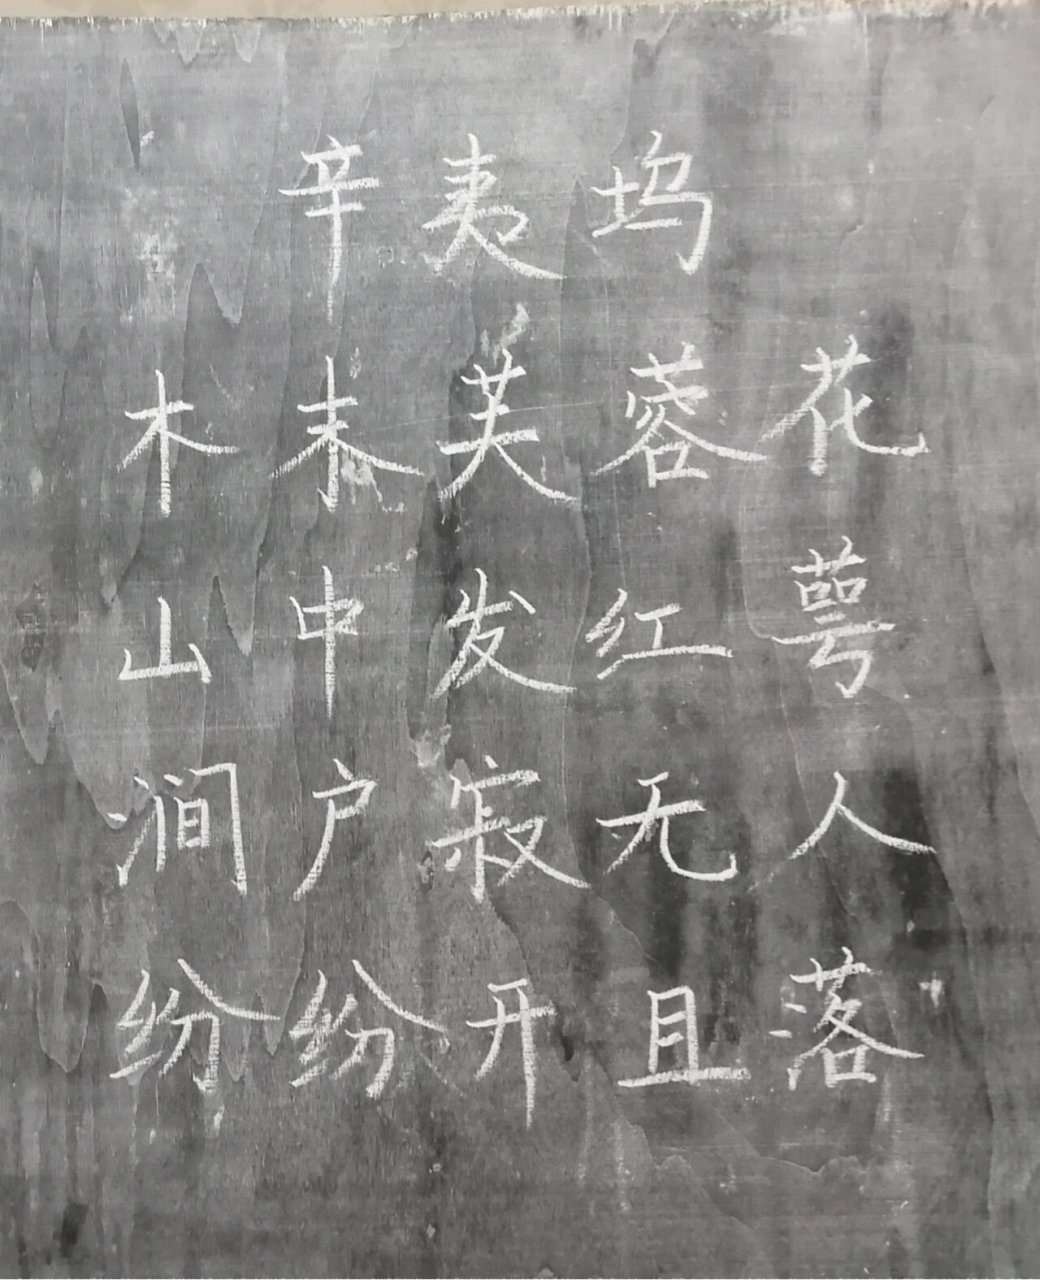 辛夷坞
木末芙蓉花
山中发红萼
涧户寂无人
纷纷开且落